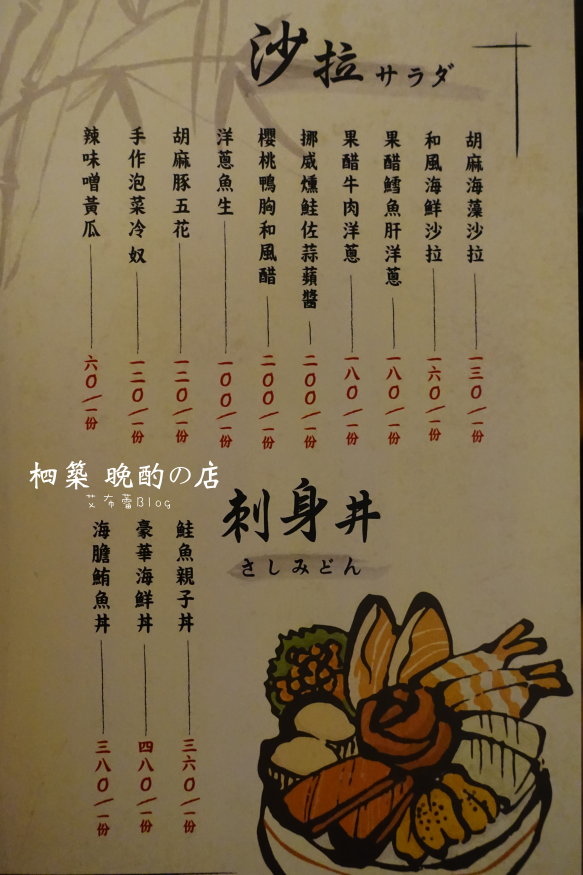 沙拉 サラダ
胡麻海藻沙拉 一三0/一份
和風海鮮沙拉 一六0/一份
果醋鱈魚肝洋蔥 一八0/一份
果醋牛肉洋蔥 一八0/一份
挪威燻鮭佐蒜蘋醬 二00/一份
櫻桃鴨胸和風醋 二00/一份
洋蔥魚生 一00/一份
胡麻豚五花 一二0/一份
手作泡菜冷奴 一二0/一份
辣味噌黃瓜 六0/一份
柶築 晩酌の店
艾布蕾Blog
刺身丼
さしみどん
鮭魚親子丼 三六0/一份
豪華海鮮丼 四八0/一份
海膽鮪魚丼 三八0/一份